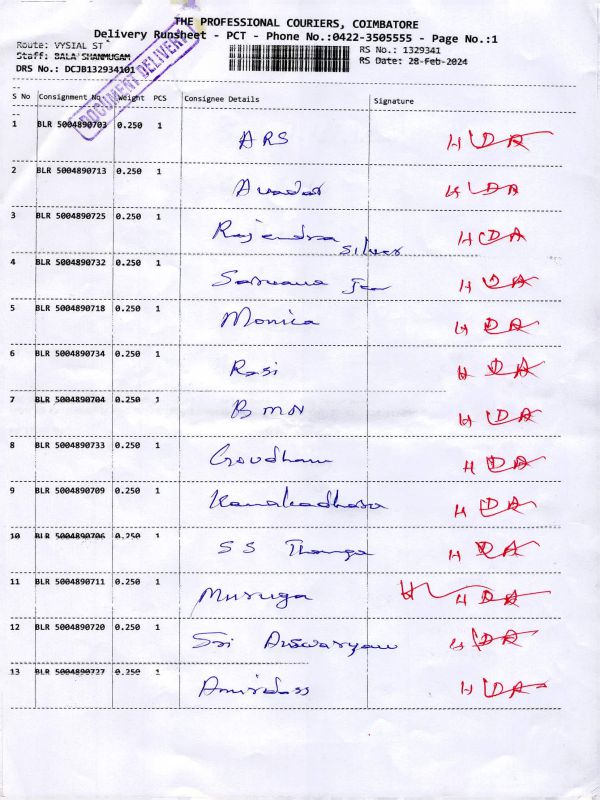 THE PROFESSIONAL COURIERS, COIMBATORE
Delivery Runsheet - PCT - Phone No.:0422-3505555 - Page No.:1
Route: VYSIAL ST
RS No.: 1329341
Staff: BALA SHANMUGAM
RS Date: 28-Feb-2024
DRS No.: DCJB132934101
DOCUMENT DELIVERY
S No Consignment No Weight PCS Consignee Details Signature
1 BLR 5004890703 0.250 1 ARS
2 BLR 5004890713 0.250 1
3 BLR 5004890725 0.250 1 Rajendra
silver
4 BLR 5004890732 0.250 1
5 BLR 5004890718 0.250 1 Monica
6 BLR 5004890734 0.250 1 Rasi
7 BLR 5004890704 0.250 1 BMN
8 BLR 5004890733 0.250 1 Goudham
9 BLR 5004890709 0.250 1 Kanakadhara
10 BLR 5004890706 0.250 1 SS Thanga
11 BLR 5004890711 0.250 1 Muruga
12 BLR 5004890720 0.250 1 Sri
13 BLR 5004890727 0.250 1